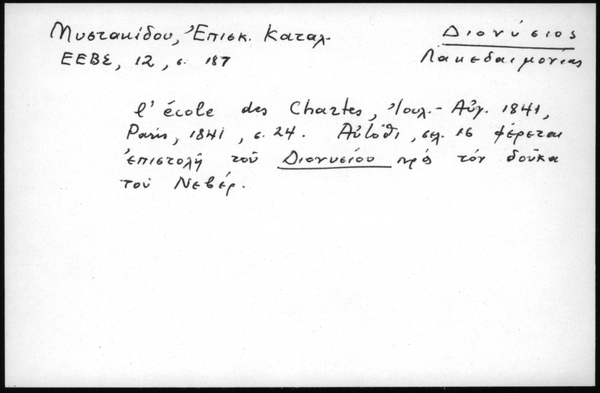 Μυστακίδου, Ἐπισκ. Καταλ.
ΕΕΒΣ, 12, σ. 187
Διονύσιος
Λακεδαιμονίας
l'école des Chartes, Ἰουλ.- Αὐγ. 1841,
Paris, 1841, σ. 24. Αὐτόθι, σελ. 16 φέρεται
ἐπιστολὴ τοῦ Διονυσίου πρὸς τὸν δοῦκα
τοῦ Νεβέρ.